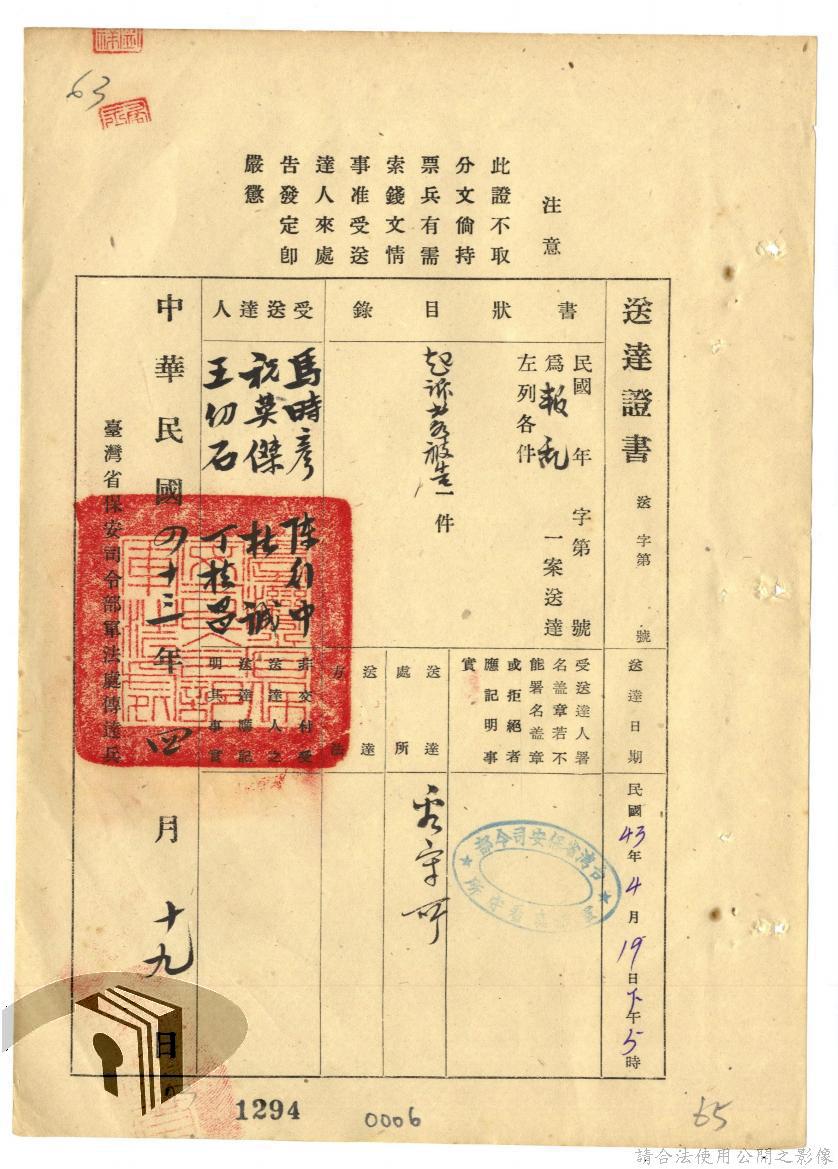 63
注意
此證不取
分文倘持
票兵有需
索錢文情
事准受送
達人來處
告發定卽
嚴懲
送達證書
送字第 號
送達日期
民國43年4月19日下午5時
書狀目錄
民國 年 字第 號
為報亂一案送達
左列各件
起訴書被告一件
受送達人署
名蓋章若不
能署名蓋章
或拒絕者
應記明事
實
台灣省保安司令部
看守所
送達處所
看守所
送達方法
受送達人
馬時彥 陈行中
祝英傑 杜誠
王切石 丁桂昌
非交付受
送達人之
送達應記
明其事實
中華民國四十三年四月十九日
臺灣省保安司令部軍法處傳達兵
1294
0006
65
請合法使用公開之影像